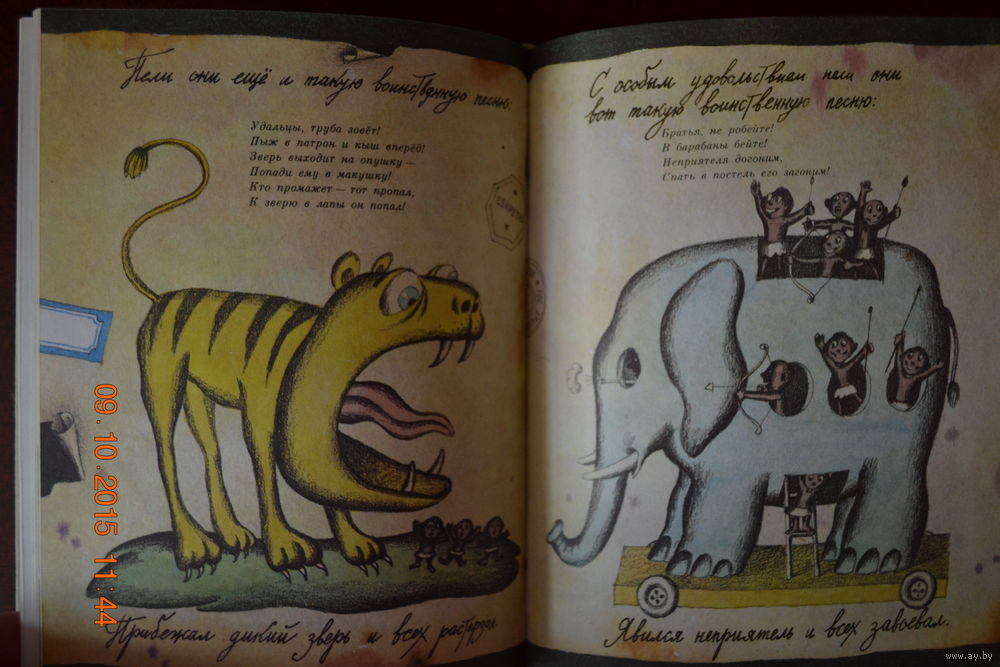 Пели они ещё и такую воинственную песню:
Удальцы, труба зовёт!
Пыж в патрон и кыш вперёд!
Зверь выходит на опушку —
Попади ему в макушку!
Кто промажет — тот пропал,
К зверю в лапы он попал!
СЕКРЕТНО
Прибежал дикий зверь и всех растерзал.
С особым удовольствием пели они
вот такую воинственную песню:
Братья, не робейте!
В барабаны бейте!
Неприятеля догоним,
Спать в постель его загоним!
Явился неприятель и всех завоевал.
09.10.2015 11:44
www.ay.by